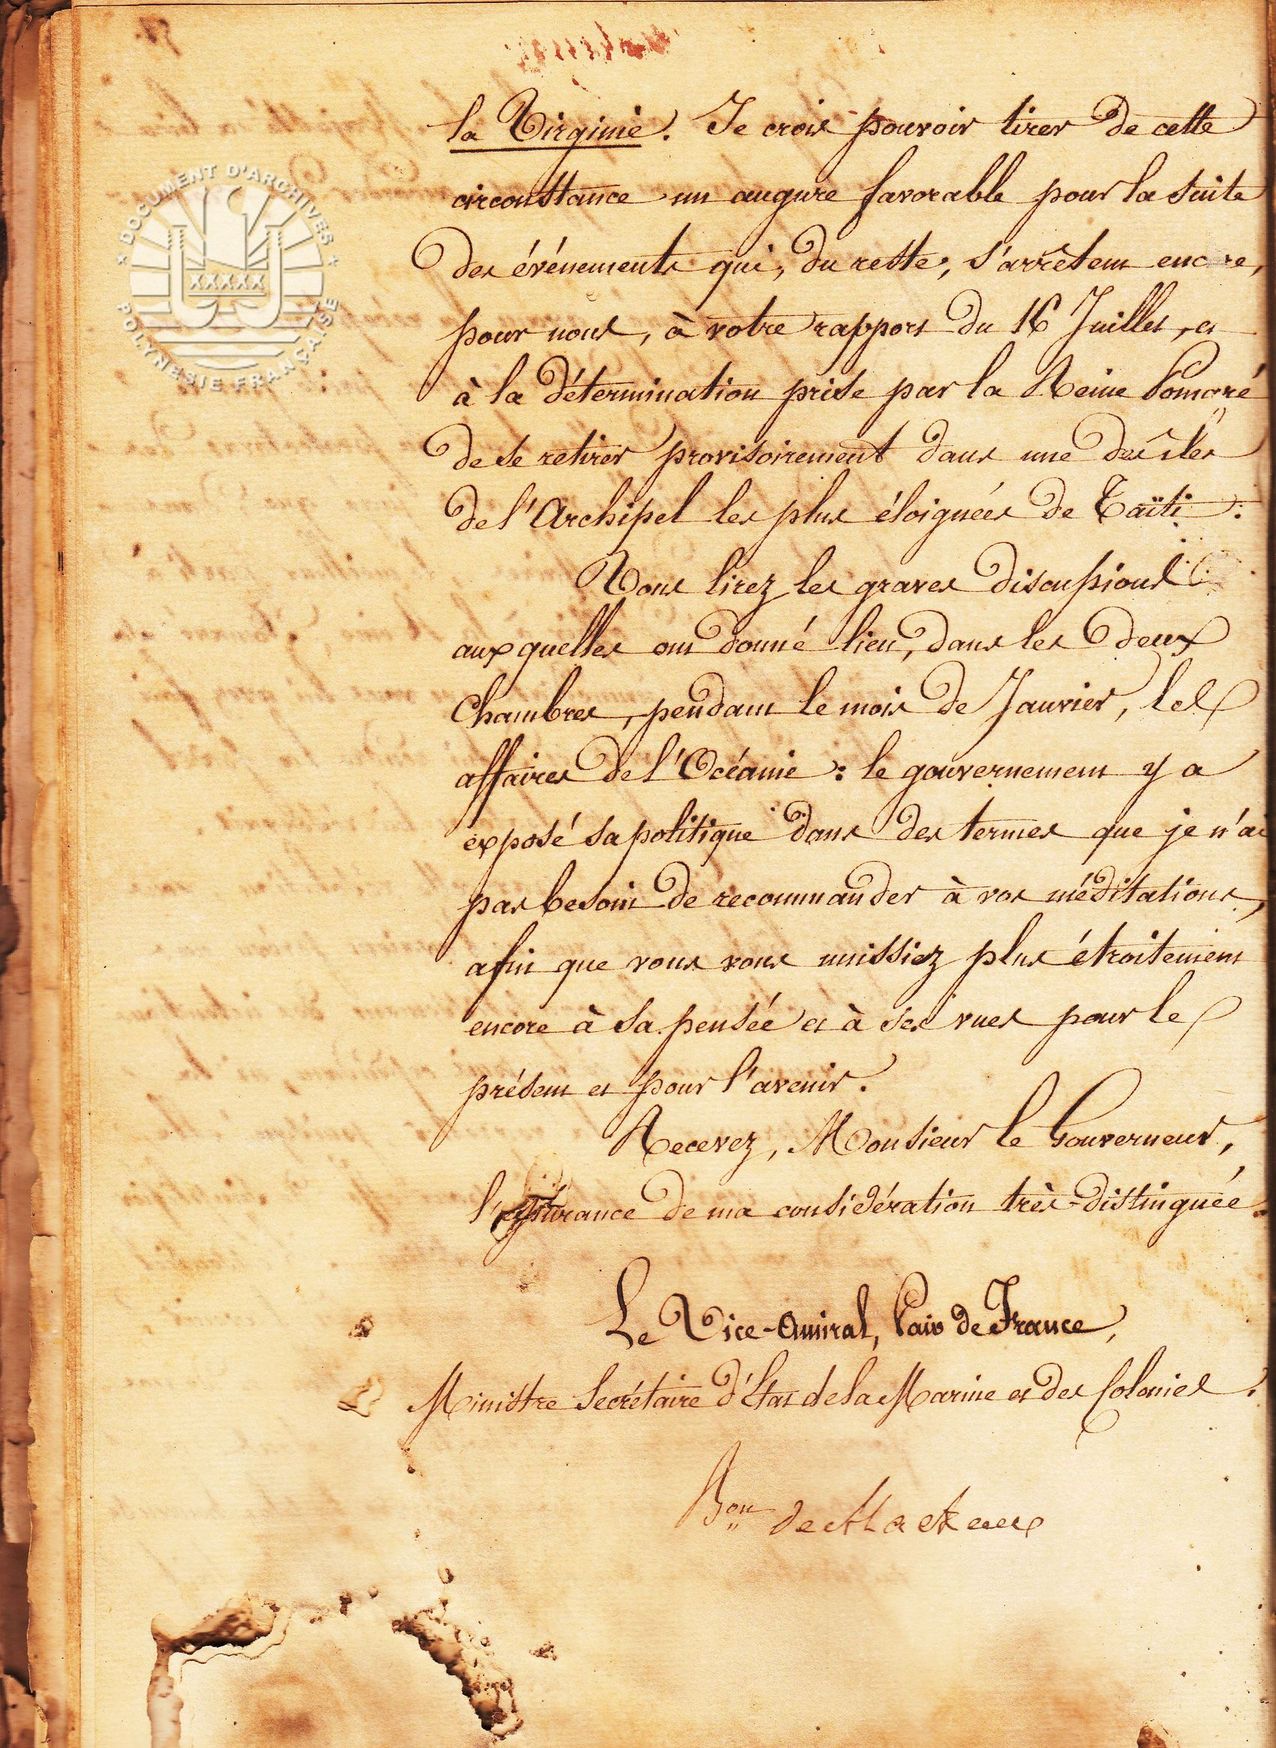 DOCUMENT D'ARCHIVES
XXXXX
POLYNESIE FRANÇAISE
la Virginie. Je crois pouvoir tirer de cette
circonstance un augure favorable pour la suite
des événements qui, du reste, s'arrêtent encore,
pour nous, à votre rapport du 16 Juillet, et
à la détermination prise par la Reine Pomaré
de se retirer provisoirement dans une des îles
de l'Archipel les plus éloignées de Taïti.
Vous lirez les graves discussions
auxquelles ont donné lieu, dans les deux
Chambres, pendant le mois de Janvier, les
affaires de l'Océanie : le gouvernement y a
exposé sa politique dans des termes que je n'ai
pas besoin de recommander à vos méditations,
afin que vous vous unissiez plus étroitement
encore à sa pensée et à ses vues pour le
présent et pour l'avenir.
Recevez, Monsieur le Gouverneur,
l'assurance de ma considération très-distinguée.
Le Vice-Amiral, Pair de France,
Ministre Secrétaire d'État de la Marine et des Colonies.
Bon de Mackau